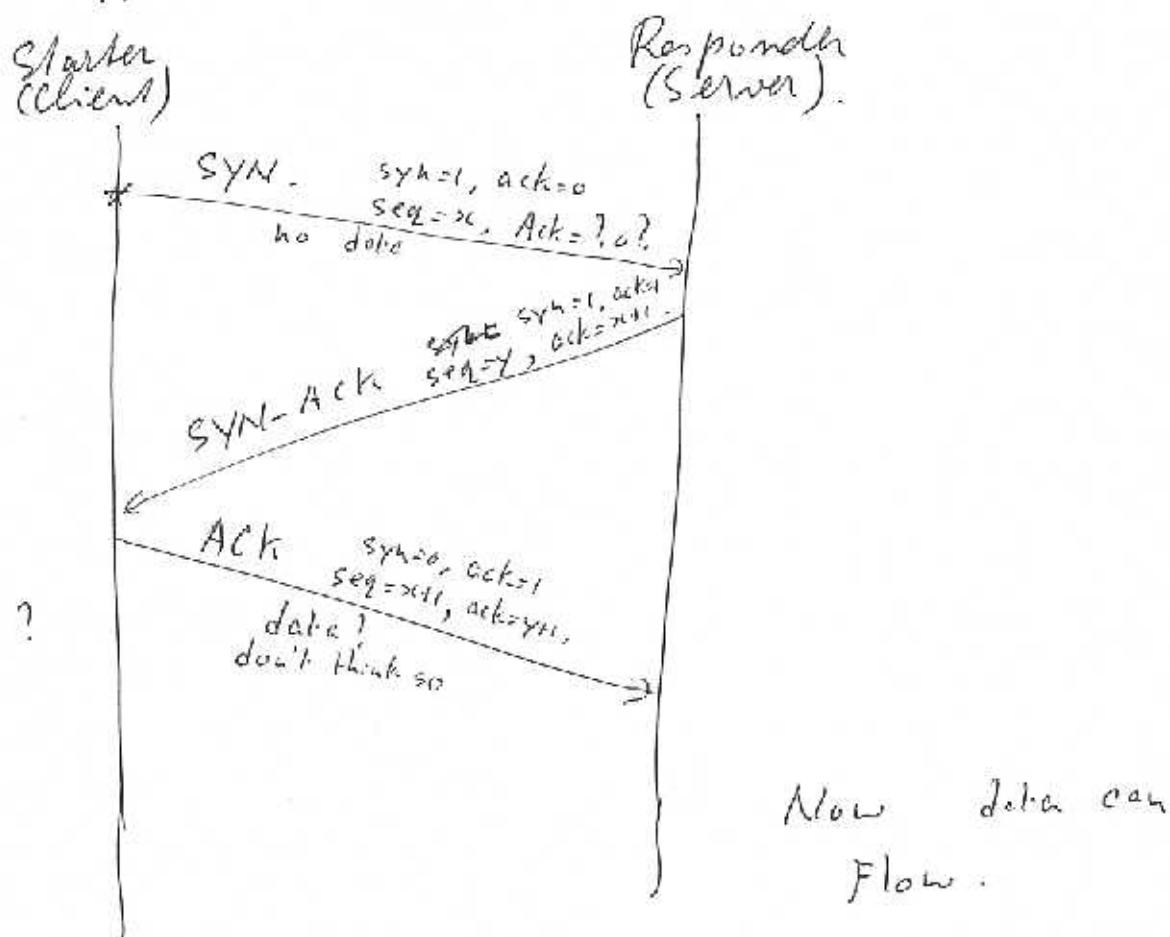 Starter
(Client)
Responder
(Server).
SYN. syn=1, ack=0
seq=x, Ack=?0?
no data
syn=1, ack=1
seq=y, ack=x+1.
SYN-ACK
ACK
syn=0, ack=1
seq=x+1, ack=y+1,
?
data?
don't think so
Now data can
Flow.